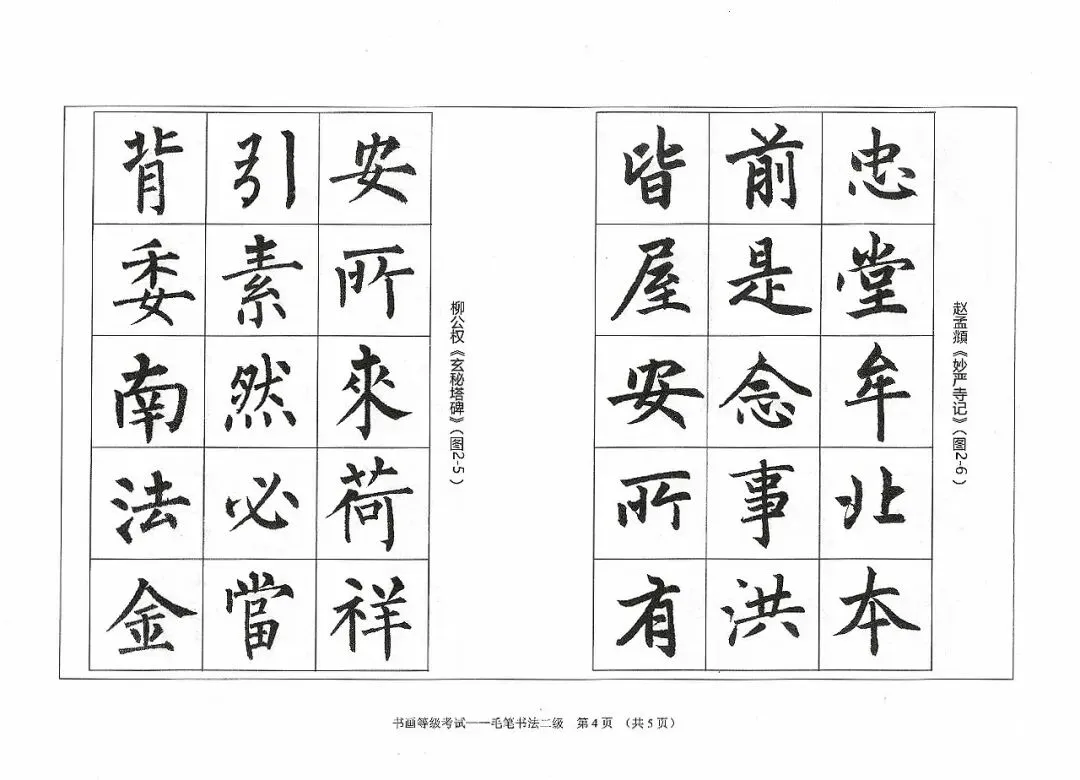 忠堂牟北本
前是念事洪
皆屋安所有
赵孟頫《妙严寺记》（图2-6）
安所來荷祥
引素然必當
背委南法金
柳公权《玄秘塔碑》（图2-5）
书画等级考试——毛笔书法二级 第4页 （共5页）